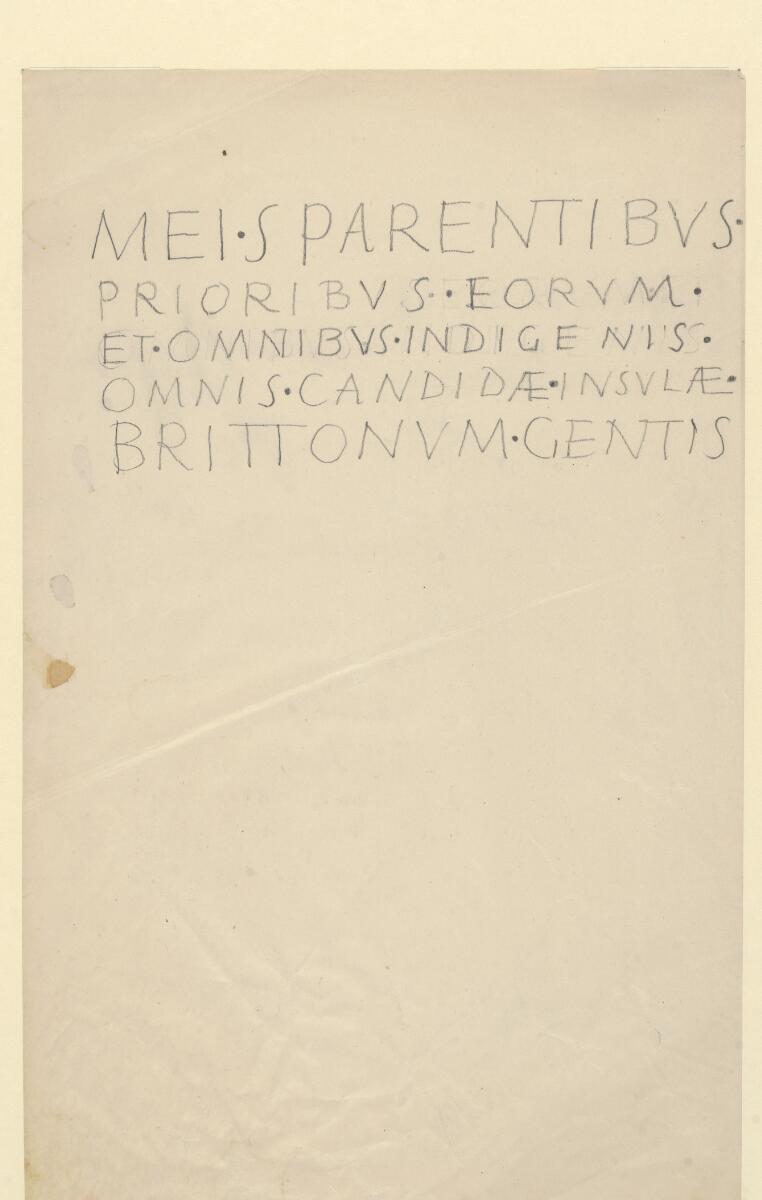 MEI·S PARENTIBVS·
PRIORIBVS·EORVM·
ET·OMNIBVS·INDIGENIS·
OMNIS·CANDIDÆ·INSVLÆ·
BRITTONVM·GENTIS